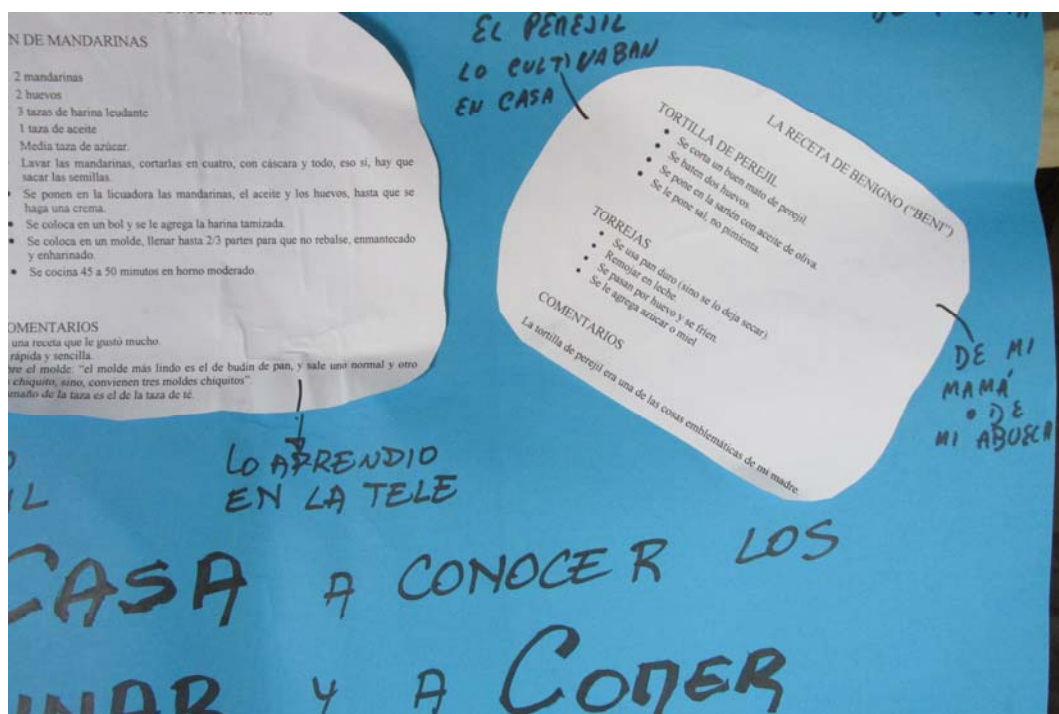 N DE MANDARINAS
2 mandarinas
2 huevos
3 tazas de harina leudante
1 taza de aceite
Media taza de azúcar.
Lavar las mandarinas, cortarlas en cuatro, con cáscara y todo, eso si, hay que
sacar las semillas.
• Se ponen en la licuadora las mandarinas, el aceite y los huevos, hasta que se
haga una crema.
• Se coloca en un bol y se le agrega la harina tamizada.
• Se coloca en un molde, llenar hasta 2/3 partes para que no rebalse, enmantecado
y enharinado.
• Se cocina 45 a 50 minutos en horno moderado.
OMENTARIOS
una receta que le gustó mucho.
rápida y sencilla.
re el molde: "el molde más lindo es el de budín de pan, y sale uno normal y otro
chiquito, sino, convienen tres moldes chiquitos".
maño de la taza es el de la taza de té.
LO APRENDIO
EN LA TELE
EL PEREJIL
LO CULTIVABAN
EN CASA
LA RECETA DE BENIGNO ("BENI")
TORTILLA DE PEREJIL
• Se corta un buen mato de perejil.
• Se baten dos huevos.
• Se pone en la sartén con aceite de oliva.
• Se le pone sal, no pimienta.
TORREJAS
• Se usa pan duro (sino se lo deja secar)
• Remojar en leche.
• Se pasan por huevo y se fríen.
• Se le agrega azúcar o miel
COMENTARIOS
La tortilla de perejil era una de las cosas emblemáticas de mi madre.
DE MI
MAMÁ
O DE
MI ABUELA
IL
CASA A CONOCER LOS
INAR Y A COMER